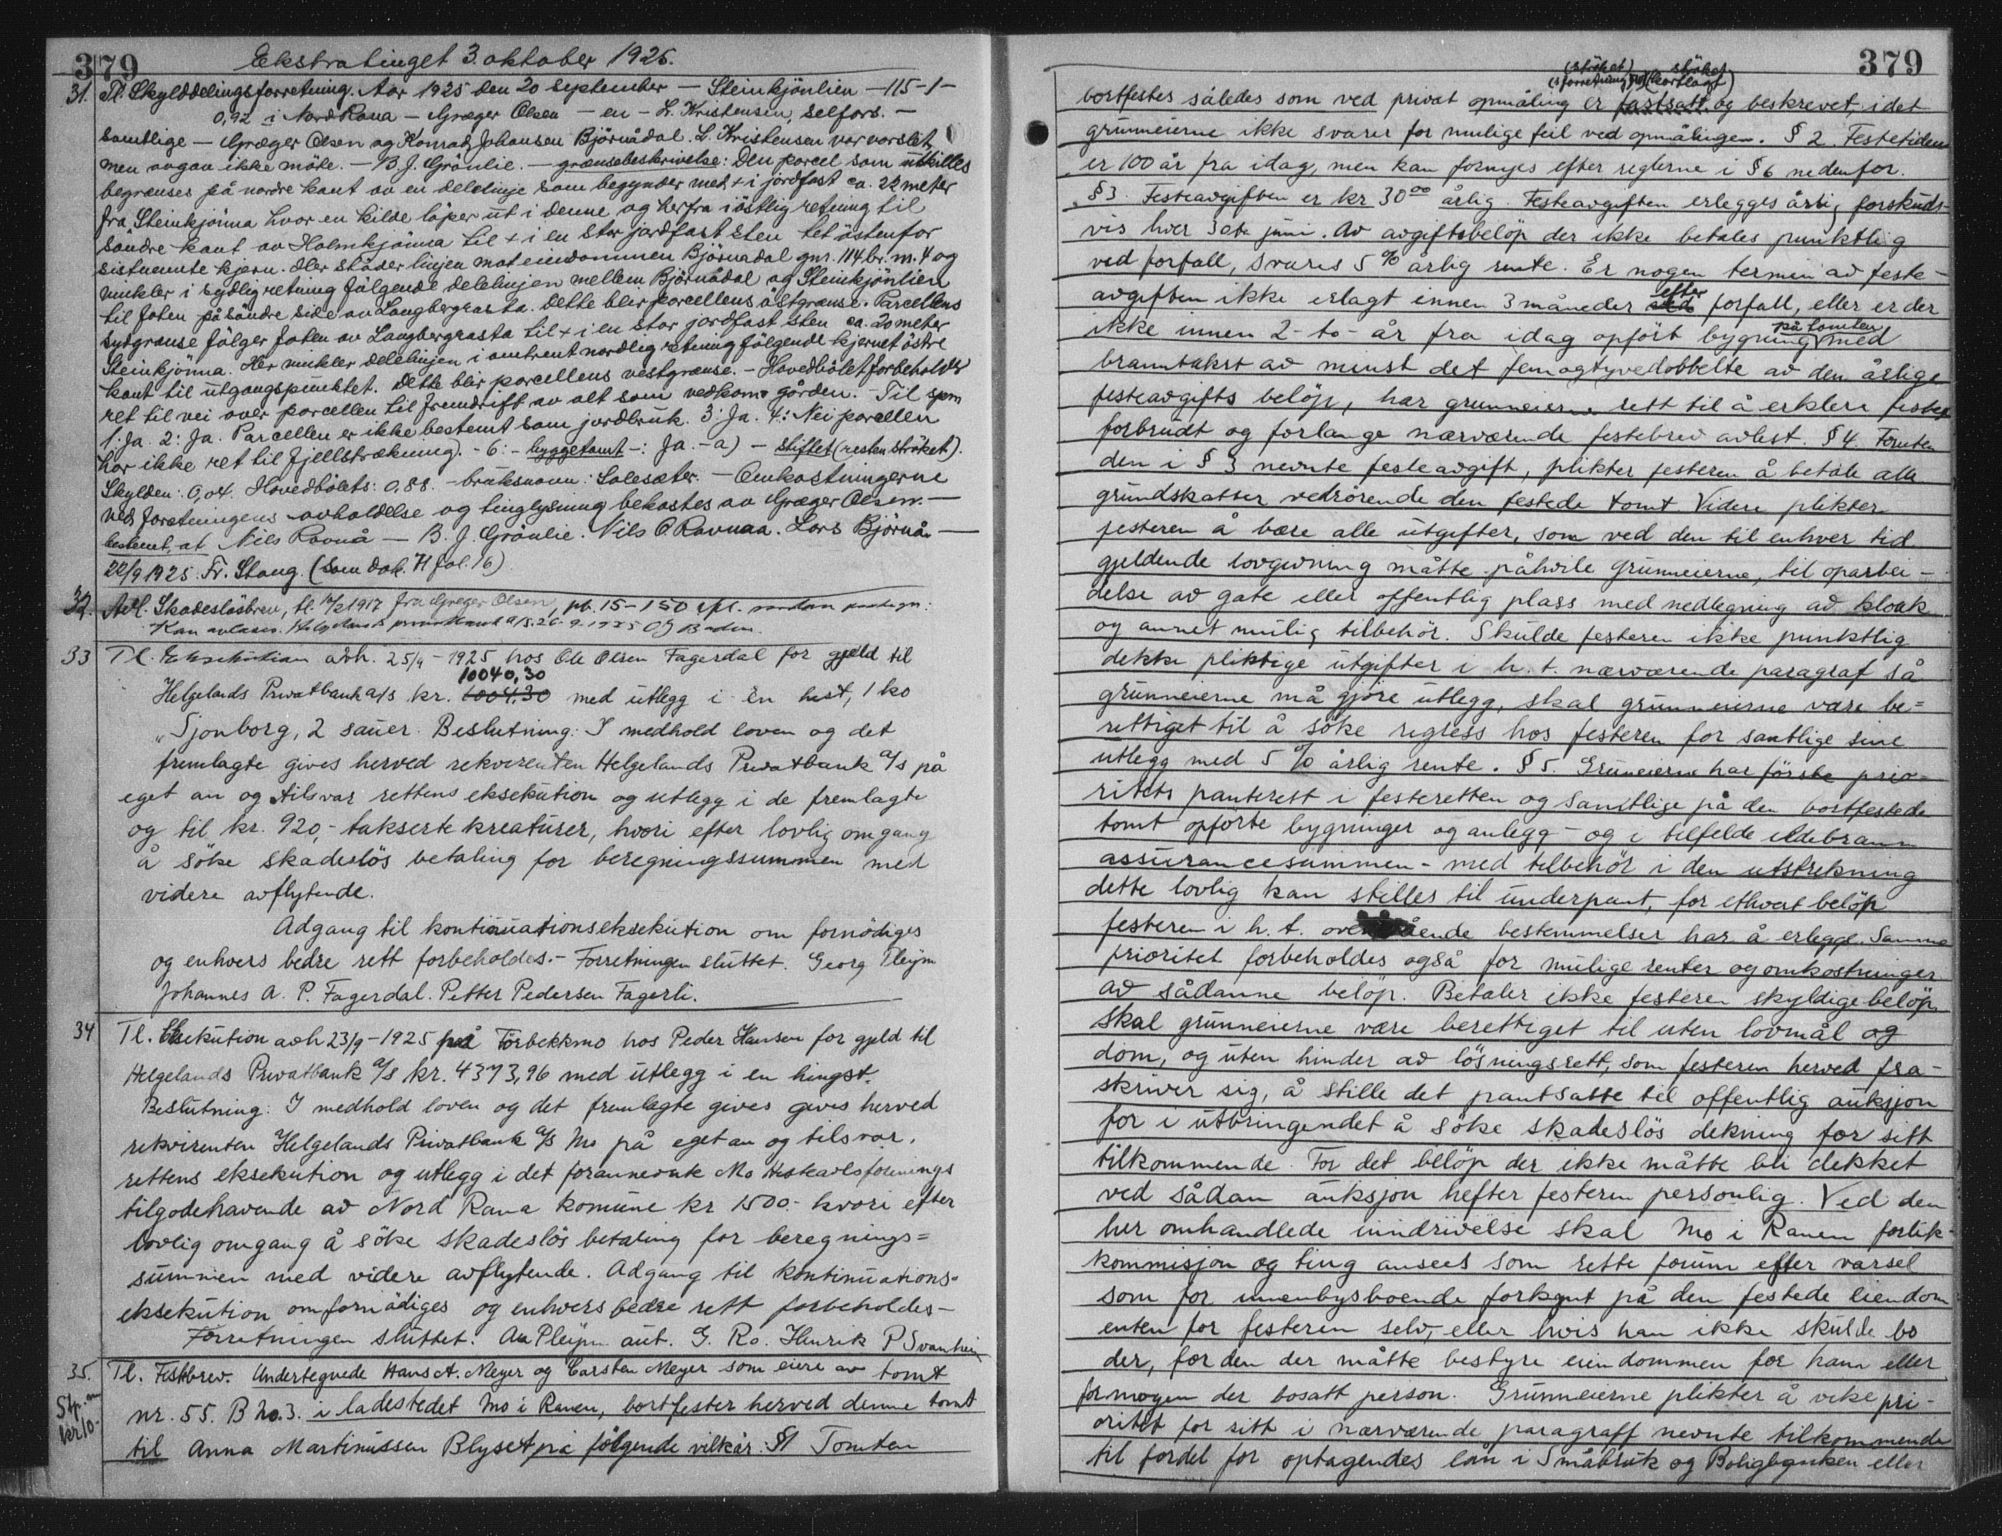 379
Ekstratinget 3. oktober 1925.
31. Tl. Skylddelingsforretning. Aar 1925 den 20 september — Steinkjönlien — 115-1-
0,92 i Nord Rana — Græger Olsen — en — L. Kristensen, Selfors. —
samtlige — Græger Olsen og Konrad Johansen Björnådal. L. Kristensen var varslet
men avgav ikke möte. — B. J. Grönlie. — grænsebeskrivelse: Den parcel som utskilles
begrænses på nordre kant av en delelinje som begynder med + i jordfast ca. 22 meter
fra Steinkjönna hvor en kilde löper ut i denne og herfra i östlig retning til
söndre kant av Holmkjönna til + i en stor jordfast sten tet östenfor
sistnevnte kjern. Her stöder linjen mot eiendommen Björnadal gnr. 114 br. nr. 4 og
vinkler i sydlig retning fölgende delelinjen mellem Björnådal og Steinkjönlien
til foten på söndre side av Langbergrasta. Dette blir parcellens östgrænse. Parcellens
sydgrænse fölger foten av Langbergrasta til + i en stor jordfast sten ca. 20 meter
Steinkjönna. Her vinkler delelinjen i omtrent nordlig retning fölgende kjernet östre
kant til utgangspunktet. Dette blir parcellens vestgrænse. — Hovedbölet forbeholdes
ret til vei over parcellen til fremdrift av alt som vedkom. gården. — Til spm
1. Ja. 2: Ja. Parcellen er ikke bestemt som jordbruk. 3: Ja. 4: Nei parcellen
har ikke ret til fjellstrækning. - 6: - byggetomt -: Ja. - a) - skiftet (resten ströket).
Skylden: 0,04. Hovedbölets: 0,88. - bruksnavn: Solesæter. — Omkostningerne
ved forretningens avholdelse og tinglysning bekostes av Græger Olsen. —
bestemt, at Nils Ravnå — B. J. Grönlie. Nils O. Ravnaa. Lars Björnå —
22/9 1925. Fr. Stang. (Som dok. 71 fol. 16)
32. Avl. Skadeslösbrev, tl. 10/2 1917 fra Græger Olsen, pb. 15-150
Kan avlæses. Helgelands privatbank a/s. 26-9-1925
33 Tl. Eksekution avh. 25/9 - 1925 hos Ole Olsen Fagerdal for gjeld til
10040,30
Helgelands Privatbank a/s kr. 1004,30 med utlegg i én hest, 1 ko
"Sjonborg, 2 sauer. Beslutning: I medhold loven og det
fremlagte gives herved rekvirenten Helgelands Privatbank a/s på
eget an og tilsvar rettens eksekution og utlegg i de fremlagte
og til kr. 920,- takserte kreaturer, hvori efter lovlig omgang
å söke skadeslös betaling for beregningssummen med
videre avflytende.
Adgang til kontinuationseksekution om fornödiges
og enhvers bedre rett forbeholdes. - Forretningen sluttet. Georg Pleym
Johannes A. P. Fagerdal. Petter Pedersen Fagerli.
34 Tl. Eksekution avh 23/9 - 1925 på Förbekkmo hos Peder Hansen for gjeld til
Helgelands Privatbank a/s kr. 4373,96 med utlegg i en hingst.
Beslutning: I medhold loven og det fremlagte gives gives herved
rekvirenten Helgelands Privatbank a/s Mo på eget an og tilsvar.
rettens eksekution og utlegg i det forannevnte Mo Hesteavlsforenings
tilgodehavende av Nord Rana Komune kr 1500.- hvori efter
lovlig omgang å söke skadeslös betaling for beregnings=
summen med videre avflytende. Adgang til kontinuations-
eksekution om fornödiges og enhvers bedre rett forbeholdes -
Forretningen sluttet. Pleym aut. G. Ro. Henrik P Svanhei
35. Tl. Festebrev. Undertegnede Hans A. Meyer og Carsten Meyer som eiere av tomt
Stp.m
kr 10-
nr. 55. B no. 3. i ladestedet Mo i Ranen, bortfester herved denne tomt
til Anna Martinussen Blyset på fölgende vilkår: §1 Tomten
379
(ströket) ströket
(i forretning) (kartlagt)
bortfestes således som ved privat opmåling er fastsatt og beskrevet, idet
grunneierne ikke svarer for mulige feil ved opmålingen. § 2. Festetiden
er 100 år fra idag, men kan fornyes efter reglerne i § 6 nedenfor.
§ 3. Festeavgiften er kr 30 00 årlig. Festeavgiften erlegges årlig forskuds-
vis hver 3die juni. Av avgiftsbelöp der ikke betales punktlig
ved forfall, svares 5 % årlig rente. Er nogen termin av feste-
avgiften ikke erlagt innen 3 måneder efter forfall, eller er der
ikke innen 2-to- år fra idag opfört bygning på tomten med
branntakst av minst det femogtyvedobbelte av den årlige
festeavgifts belöp, har grunneierne rett til å erklere feste
forbrudt og forlange nærværende festebrev avlest. § 4. Foruten
den i § 3 nevnte festeavgift, plikter festeren å betale alle
grundskatter vedrörende den festede tomt Videre plikter
festeren å bære alle utgifter, som ved den til enhver tid
gjeldende lovgivning måtte påhvile grunneierne, til oparbei-
delse av gate eller offentlig plass med nedlegning av kloak
og annet mulig tilbehör. Skulde festeren ikke punktlig
dekke pliktige utgifter i h. t. nærværende paragraf så
grunneierne må gjöre utlegg, skal grunneierne være be=
rettiget til å söke regress hos festeren for samtlige sine
utlegg med 5 % årlig rente. § 5. Gruneierne har förste prio-
ritets panterett i festeretten og samtlige på den bortfestede
tomt opförte bygninger og anlegg - og i tilfelde ildebrann
assurancesummen - med tilbehör i den utstrekning
dette lovlig kan stilles til underpant, for ethvert belöp
festeren i h. t. ovenstående bestemmelser har å erlegge. Samme
prioritet forbeholdes også for mulige renter og omkostninger
av sådanne belöp. Betaler ikke festeren skyldige belöp,
skal grunneierne være berettiget til uten lovmål og
dom, og uten hinder av lösningsrett, som festeren herved fra-
skriver sig, å stille det pantsatte til offentlig auksjon
for i utbringendet å söke skadeslös dekning for sitt
tilkommende. For det belöp der ikke måtte bli dekket
ved sådan auksjon hefter festeren personlig. Ved den
her omhandlede inndrivelse skal Mo i Ranen forlik-
kommisjon og ting ansees som rette forum efter varsel
som for innenbysboende forkynt på den festede eiendom
enten for festeren selv, eller hvis han ikke skulde bo
der, for den der måtte bestyre eiendommen for ham eller
for nogen der bosatt person. Grunneierne plikter å vike pri-
oritet for sitt i nærværende paragraff nevnte tilkommende
til fordel for optagendes lån i Småbruk og Boligbanken eller